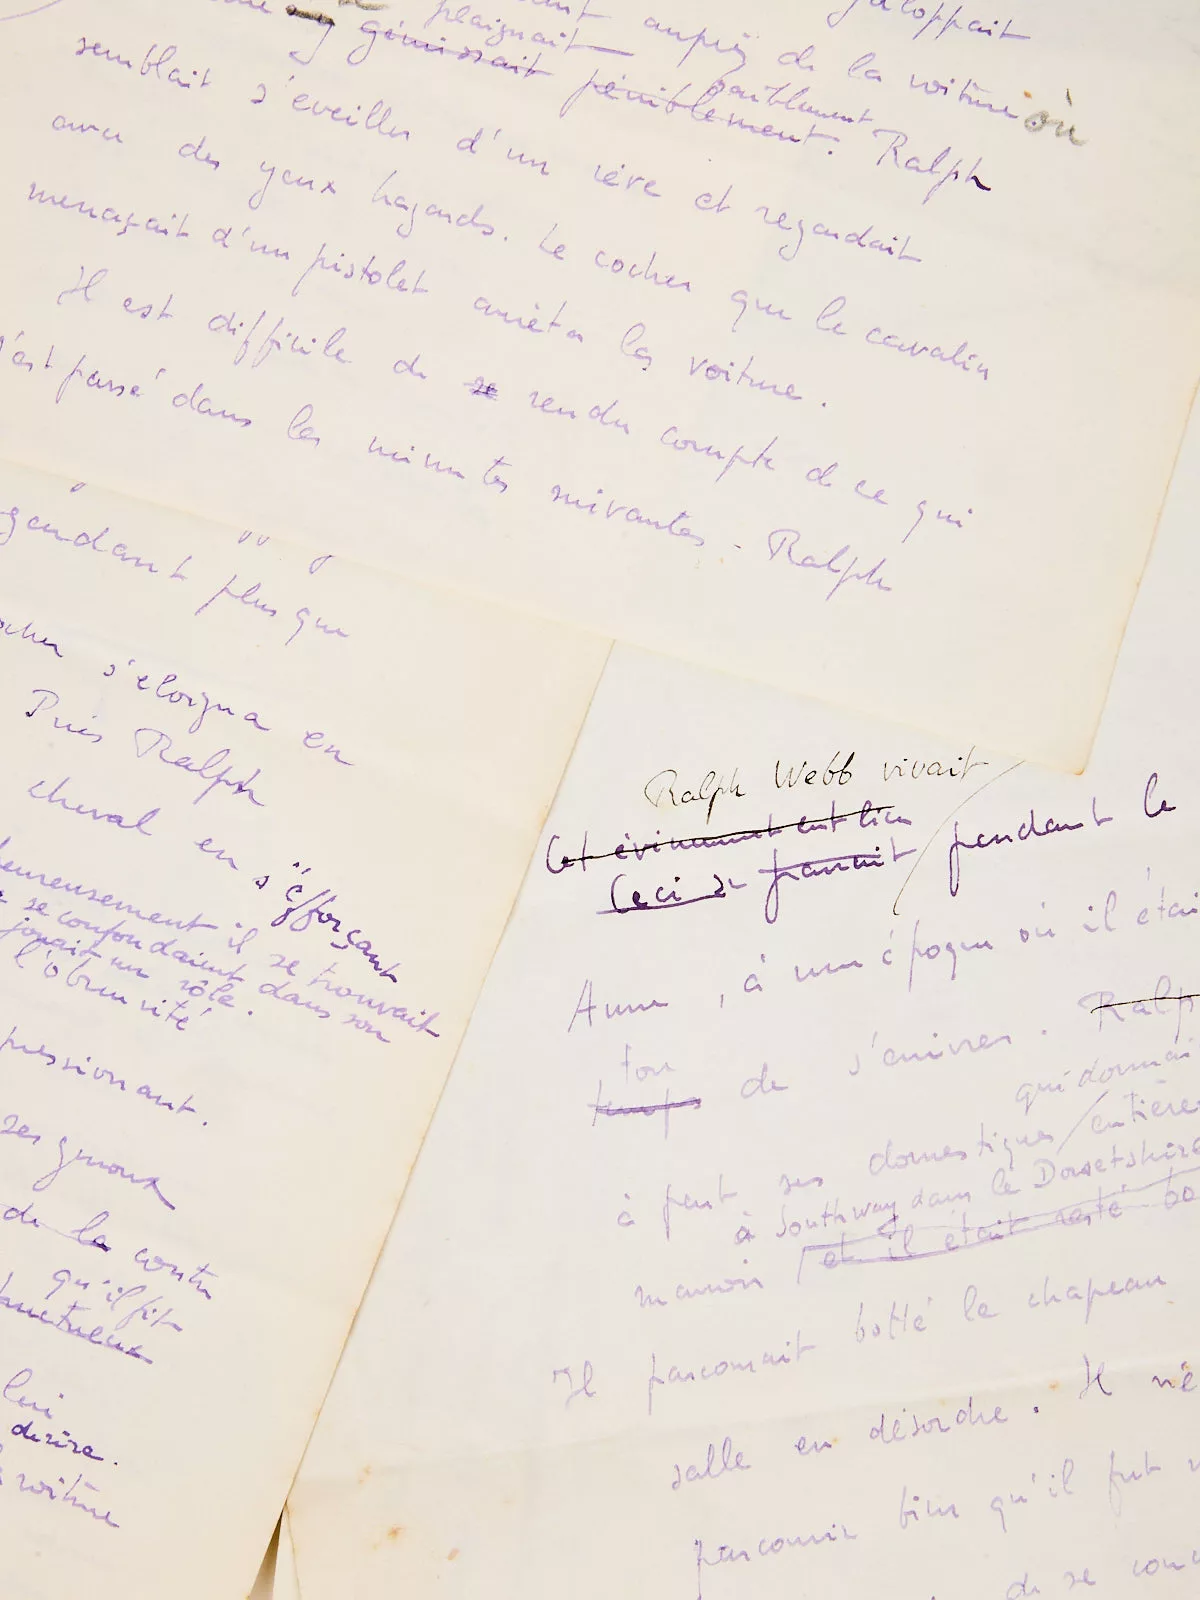 galoppait
plaignait auprès de la voiture où
gémissait péniblement. Ralph
semblait s'éveiller d'un rêve et regardait
avec des yeux hagards. Le cocher que le cavalier
menaçait d'un pistolet arrêta la voiture.
Il est difficile de se rendre compte de ce qui
s'est passé dans les minutes suivantes. Ralph
plus que
s'eloigna en
Puis Ralph
cheval en s'éfforçant
heureusement il se trouvait
se confondaient dans son
jouait un rôle.
l'obscurité
pressionant.
ses genoux
de la
qu'il fit
lui
désire.
voiture
Ralph Webb vivait
Cet évènement eut lieu
Ceci se passait pendant le
Anne, à une époque où il étai
ton
temps de s'enivrer. Ralp
qui dormai
à peut ses domestiques entière
à Southway dans le Dorsetshire
manoir et il était resté bo
Il parcourait botté le chapeau
salle en désordre. Il n'é
parcourir bien qu'il fut
de se